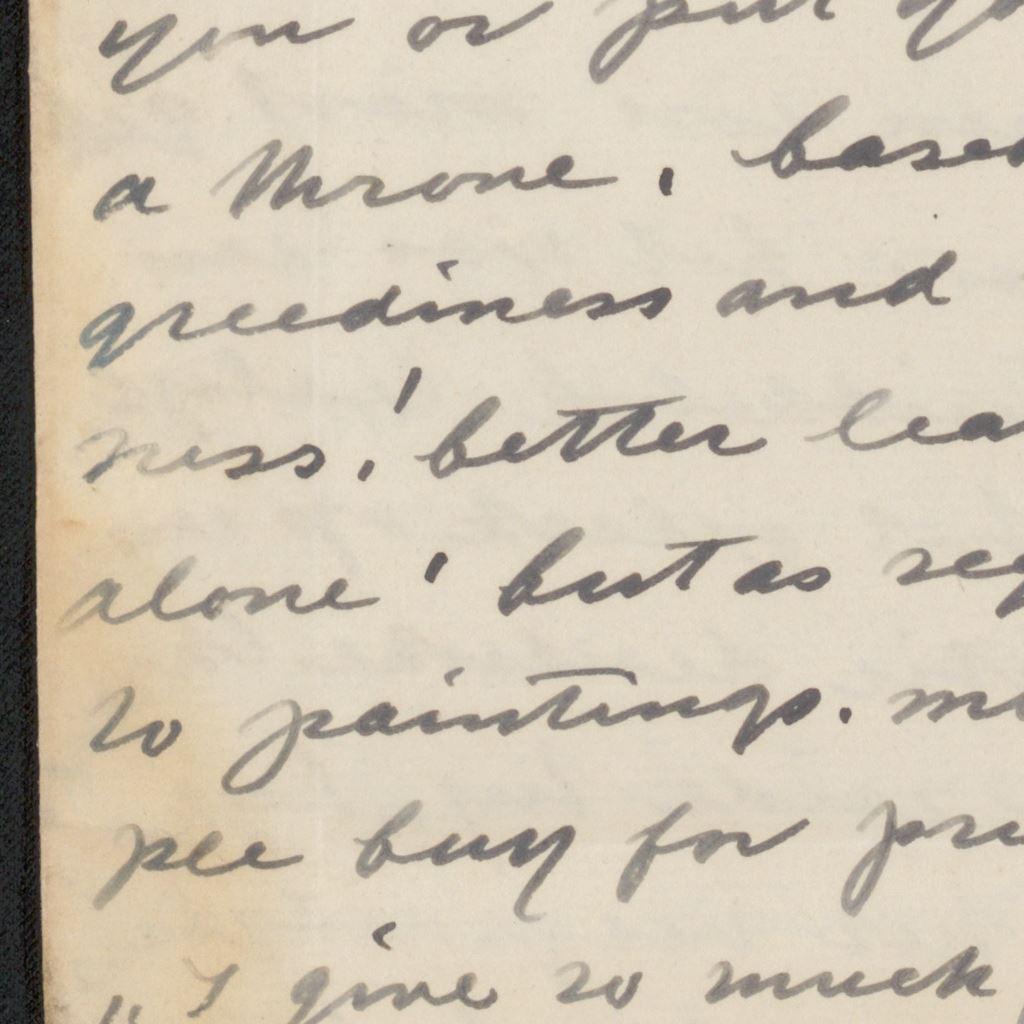 you or put yo
a throne, based
greediness and
ness! better lea
alone! but as reg
to paintings. m
ple buy for pri
„I give so much